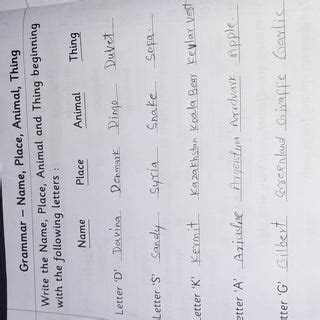 Grammar – Name, Place, Animal, Thing
Write the Name, Place, Animal and Thing beginning
with the following letters :
Name Place Animal Thing
Letter 'D' Davina Denmark Dingo Duvet
Letter 'S' Sandy Syria Snake Sofa
Letter 'K' Kermit Kazakhstan Koala Bear Kevlar Vest
Letter 'A' Argentina Aardvark Apple
Letter 'G' Gilbert Greenland Giraffe Garlic